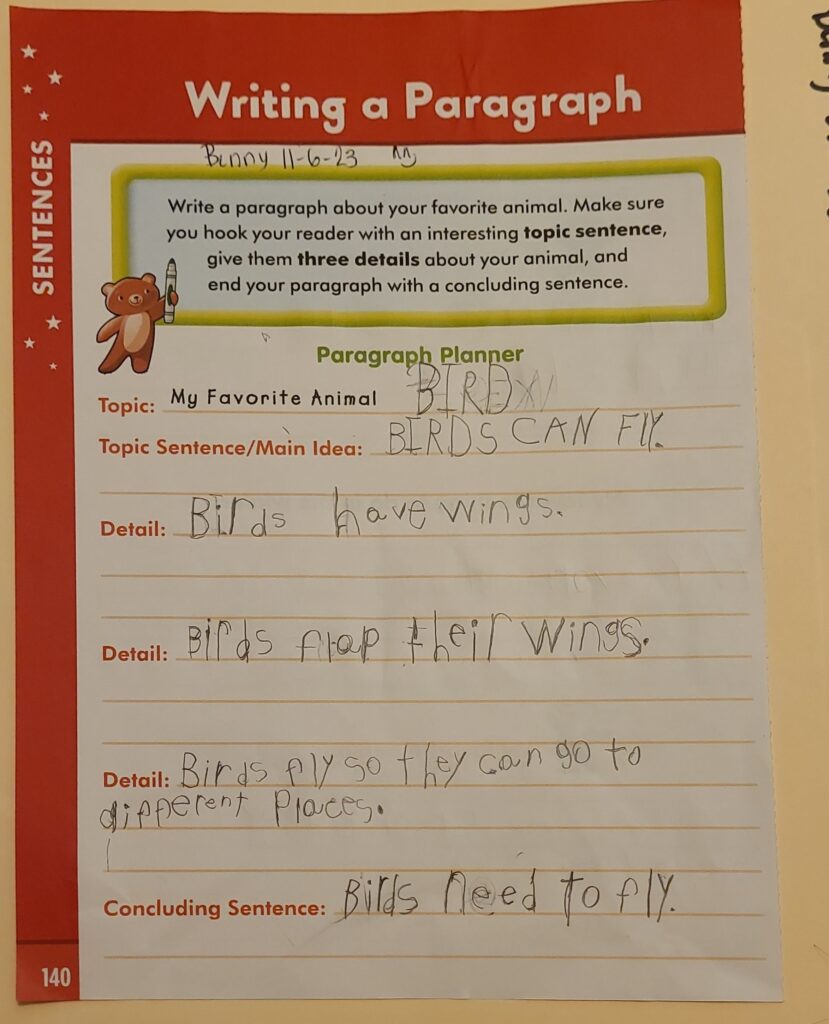 Writing a Paragraph
Binny 11-6-23
SENTENCES
Write a paragraph about your favorite animal. Make sure
you hook your reader with an interesting topic sentence,
give them three details about your animal, and
end your paragraph with a concluding sentence.
Paragraph Planner
Topic: My Favorite Animal BIRD
Topic Sentence/Main Idea: BIRDS CAN FlY.
Detail: Birds have wings.
Detail: Birds flap their wings.
Detail: Birds fly so they can go to
different Places.
Concluding Sentence: Birds need to fly.
140